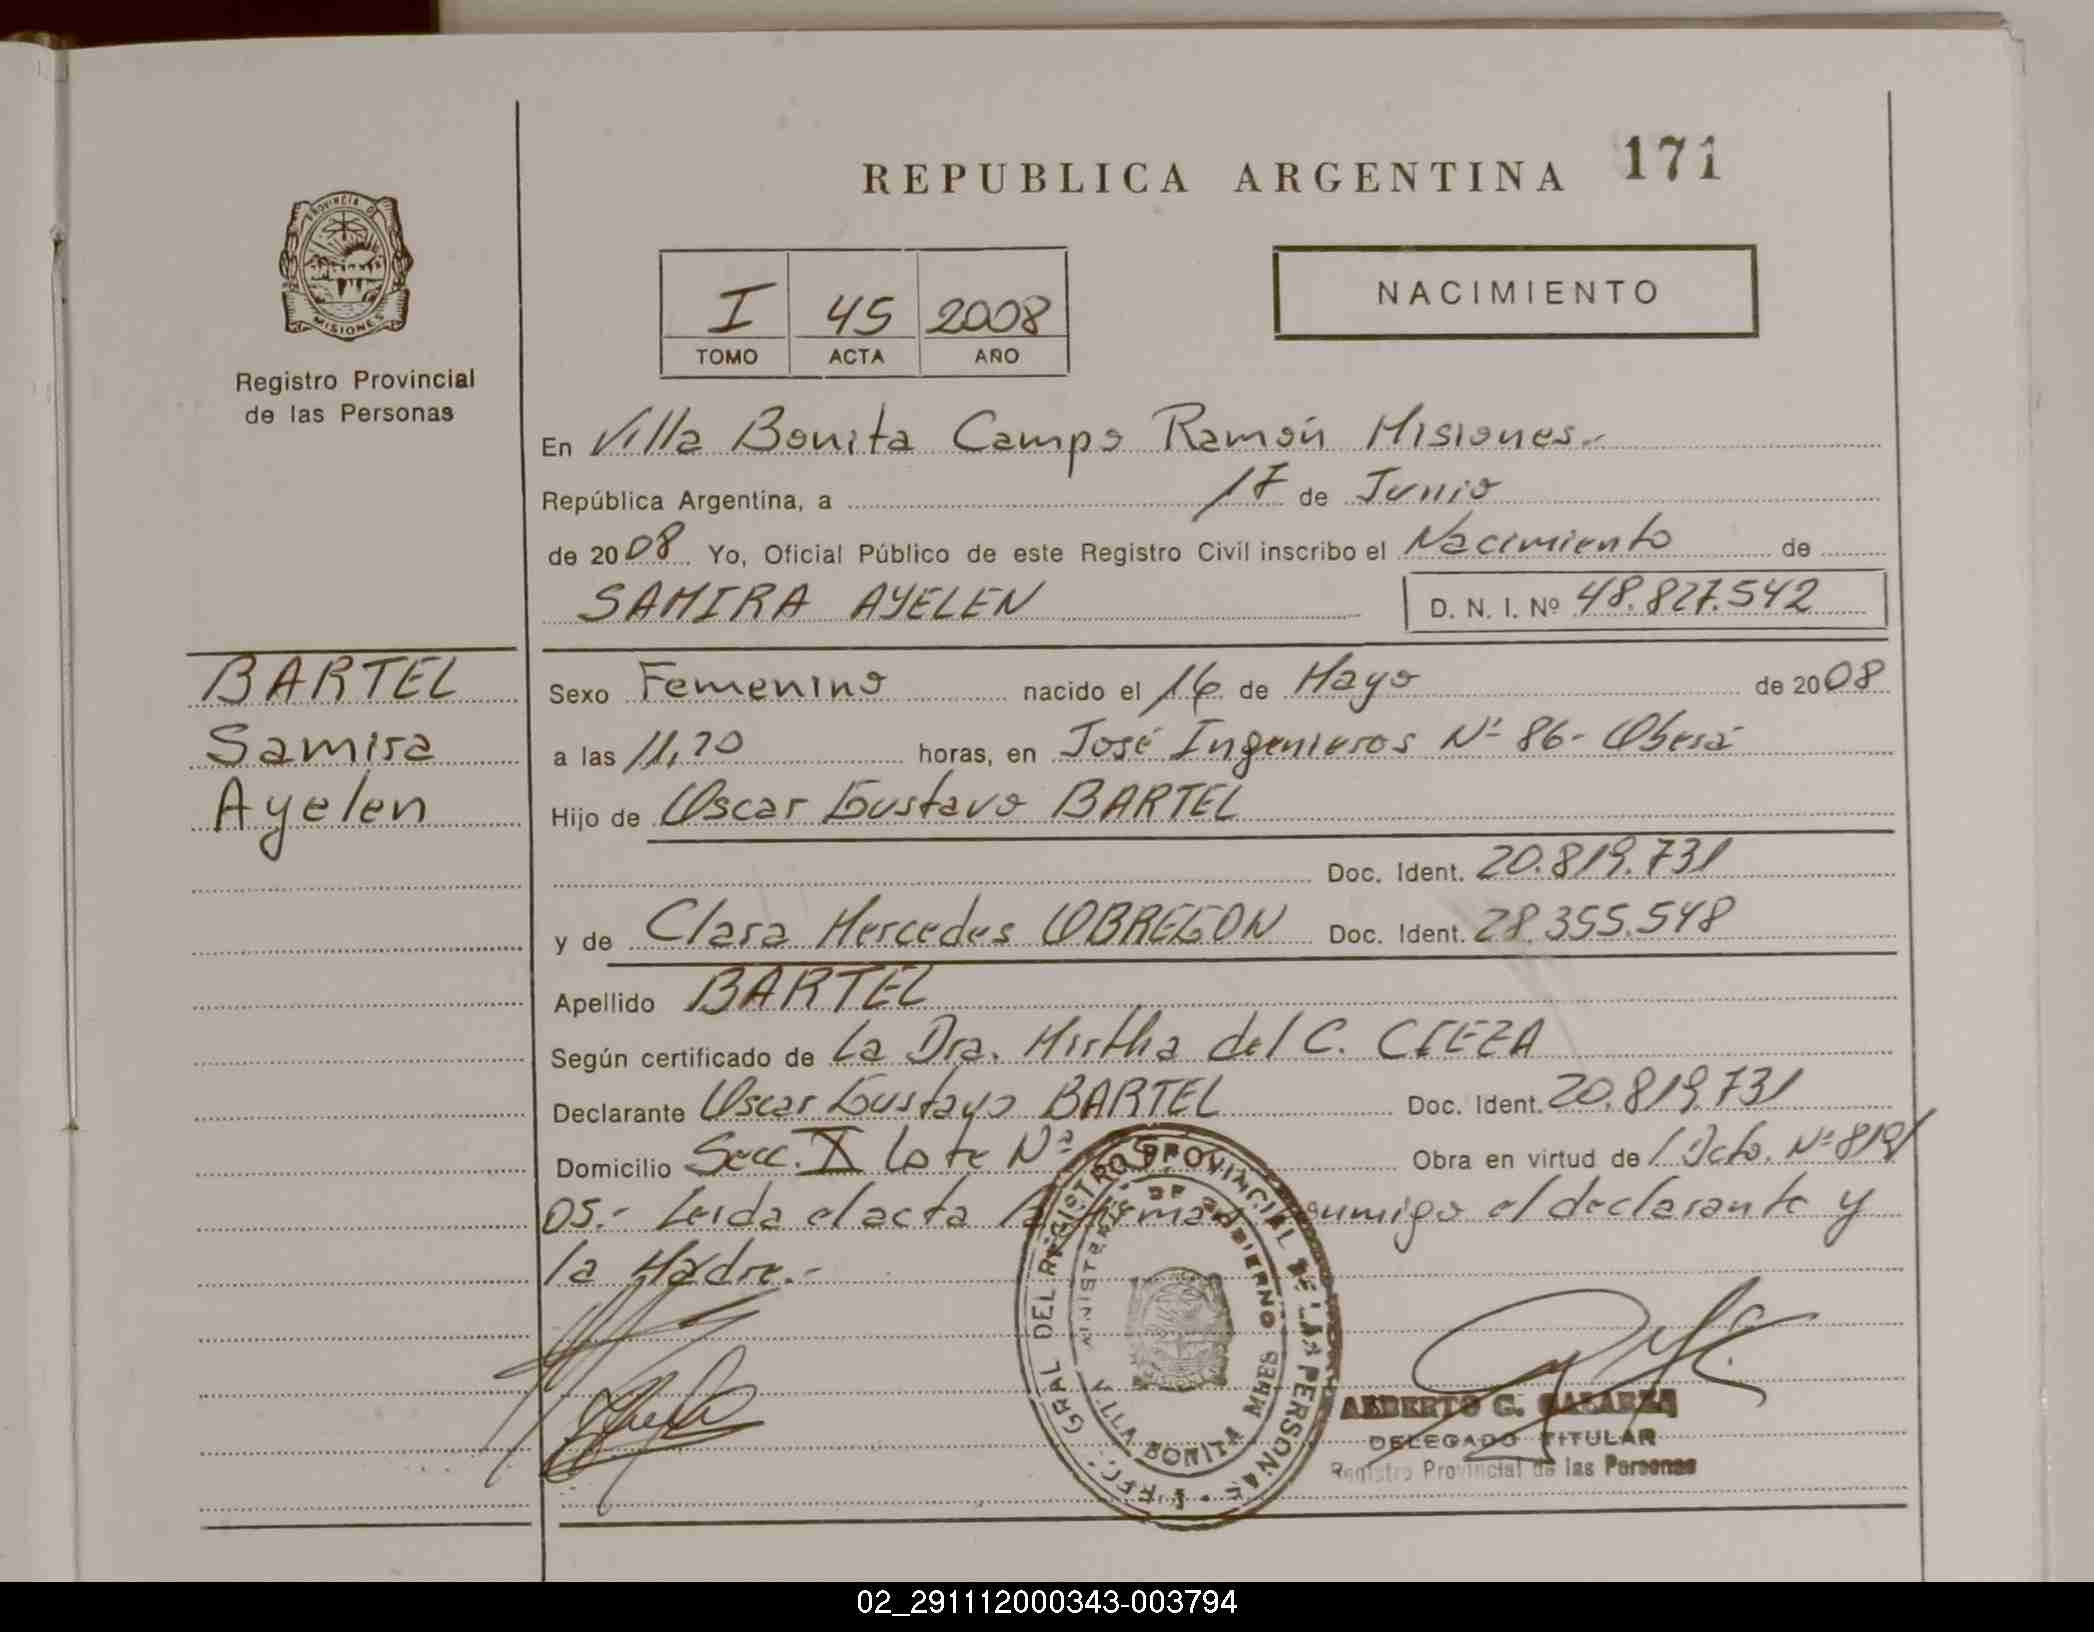 REPUBLICA ARGENTINA 171
PROVINCIA DE
MISIONES
Registro Provincial
de las Personas
I 45 2008
TOMO ACTA AÑO
NACIMIENTO
En Villa Bonita Campo Ramón Misiones.-
República Argentina, a 17 de Junio
de 2008 Yo, Oficial Público de este Registro Civil inscribo el Nacimiento de
SAMIRA AYELEN D. N. I. Nº 48.827.542
BARTEL
Samira
Ayelen
Sexo Femenino nacido el 16 de Mayo de 2008
a las 11,20 horas, en José Ingenieros Nº 86- Oberá
Hijo de Oscar Gustavo BARTEL
Doc. Ident. 20.819.731
y de Clara Mercedes OBREGON Doc. Ident. 28.355.548
Apellido BARTEL
Según certificado de La Dra. Mirtha del C. CIEZA
Declarante Oscar Gustavo BARTEL Doc. Ident. 20.819.731
Domicilio Secc. X Lote Nº Obra en virtud de / Dcto. Nº 819/
05.- Leida el acta la firma conmigo el declarante y
la Madre.-
GRAL DEL REGISTRO PROVINCIAL DE LAS PERSONAS
MINISTERIO DE GOBIERNO
VILLA BONITA MNES
ALBERTO G.
DELEGADO TITULAR
Registro Provincial de las Personas
02_291112000343-003794